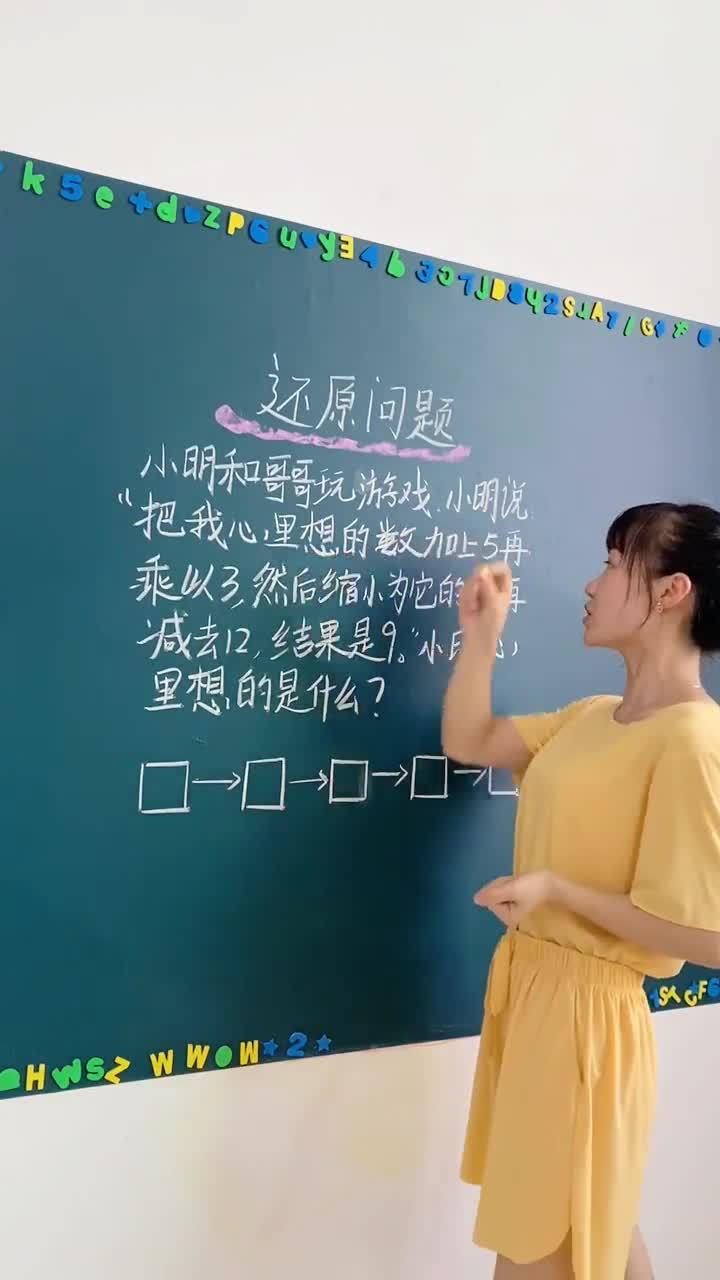 k5e+d zPGu yE4b 307JD842SJA7
还原问题
小明和哥哥玩游戏.小明说
“把我心里想的数加上5再
乘以3,然后缩小为它的 再
减去12,结果是9。”小
里想的是什么?
HWSZ WWOW 2